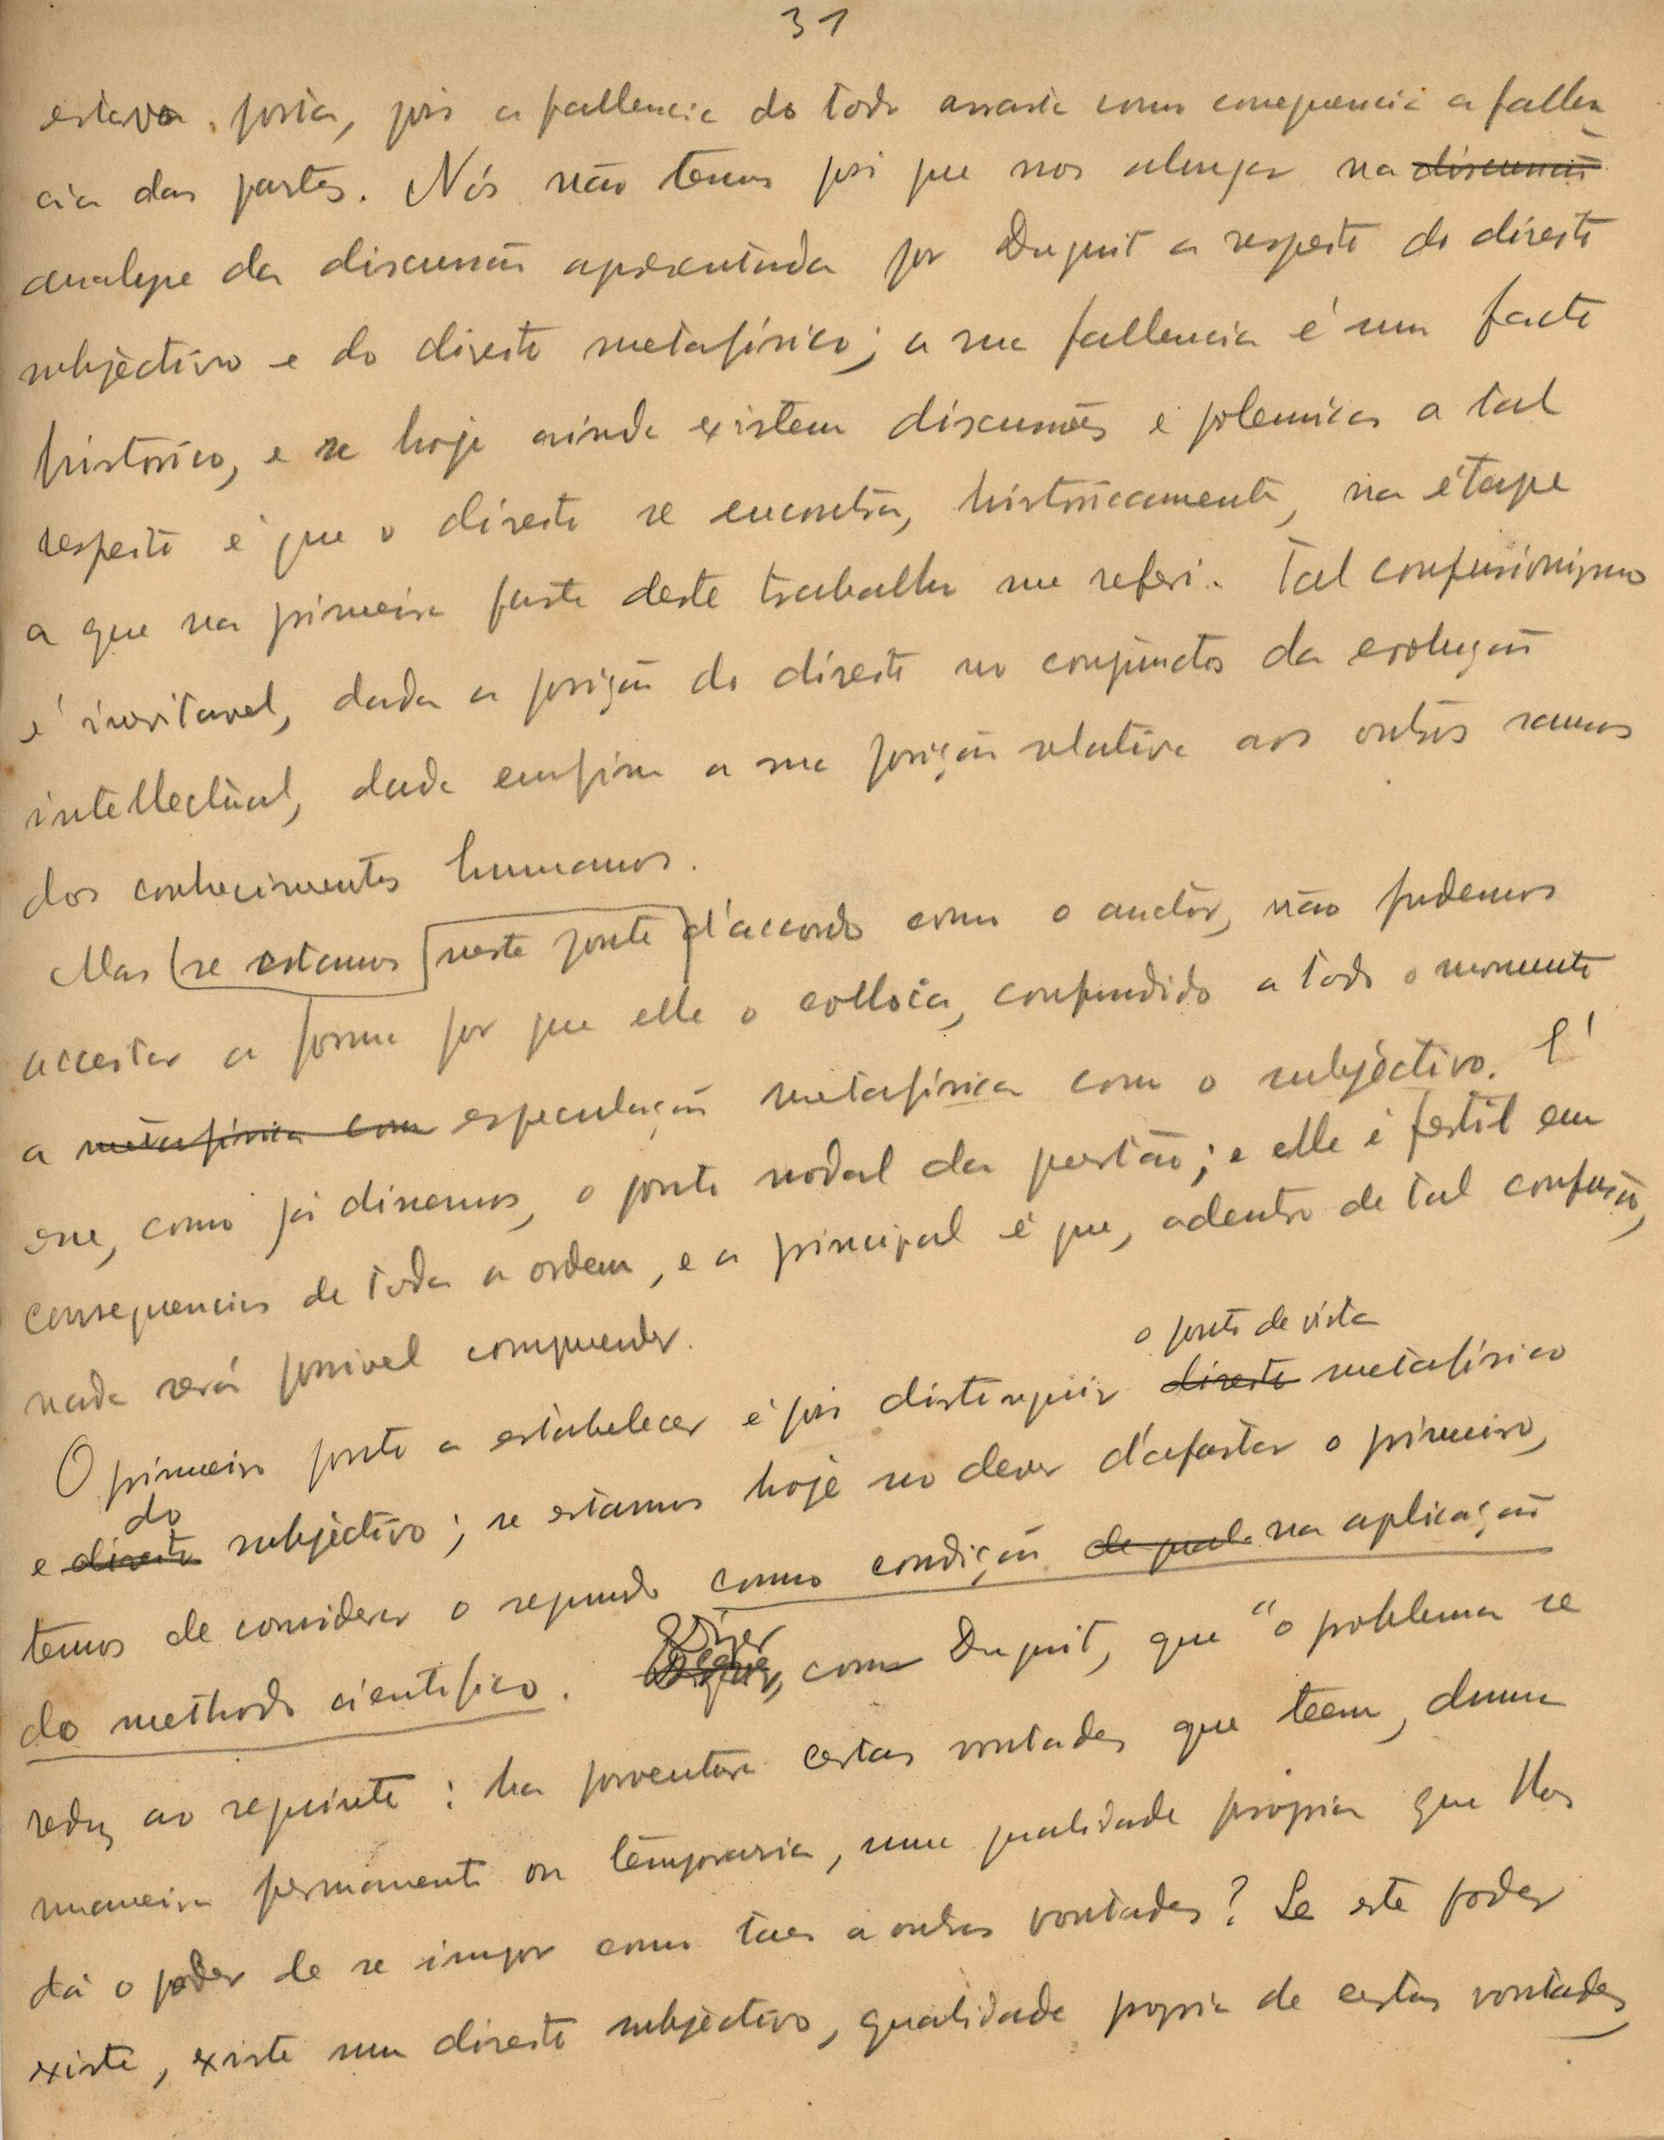 31
estava posta, pois a fallencia do todo arrasta como consequencia a fallen
cia das partes. Nós não temos pois que nos alongar na discussão
analyse da discussão apresentada por Duguit a respeito do direito
subjectivo e do direito metafísico; a sua fallencia é um facto
historico, e se hoje ainda existem discussões e polemicas a tal
respeito é que o direito se encontra, historicamente, na étape
a que na primeira parte deste trabalho me referi. Tal confusionismo
é inevitavel, dada a posição do direito no conjuncto da evolução
intellectual, dada emfim a sua posição relativa aos outros ramos
dos conhecimentos humanos.
Mas se estamos neste ponto d'accordo com o auctor, não podemos
acceitar a forma por que elle o colloca, confundido a todo o momento
a metafísica com especulação metafísica com o subjectivo. É
esse, como já dissemos, o ponto nodal da questão; e elle é fertil em
consequencias de toda a ordem, e a principal é que, adentro de tal confusão,
nada será possivel comprender.
o ponto de vista
O primeiro ponto a estabelecer é pois distinguir direito metafísico
do
e direito subjectivo; se estamos hoje no dever d'afastar o primeiro,
temos de considerar o segundo como condição de qual na aplicação
do methodo cientifico. Dizer, como Duguit, que "o problema se
reduz ao seguinte: ha porventura certas vontades que teem, duma
maneira permanente ou temporaria, uma qualidade propria que lhes
dá o poder de se impor como taes a outras vontades? Se este poder
existe, existe um direito subjectivo, qualidade propria de certas vontades